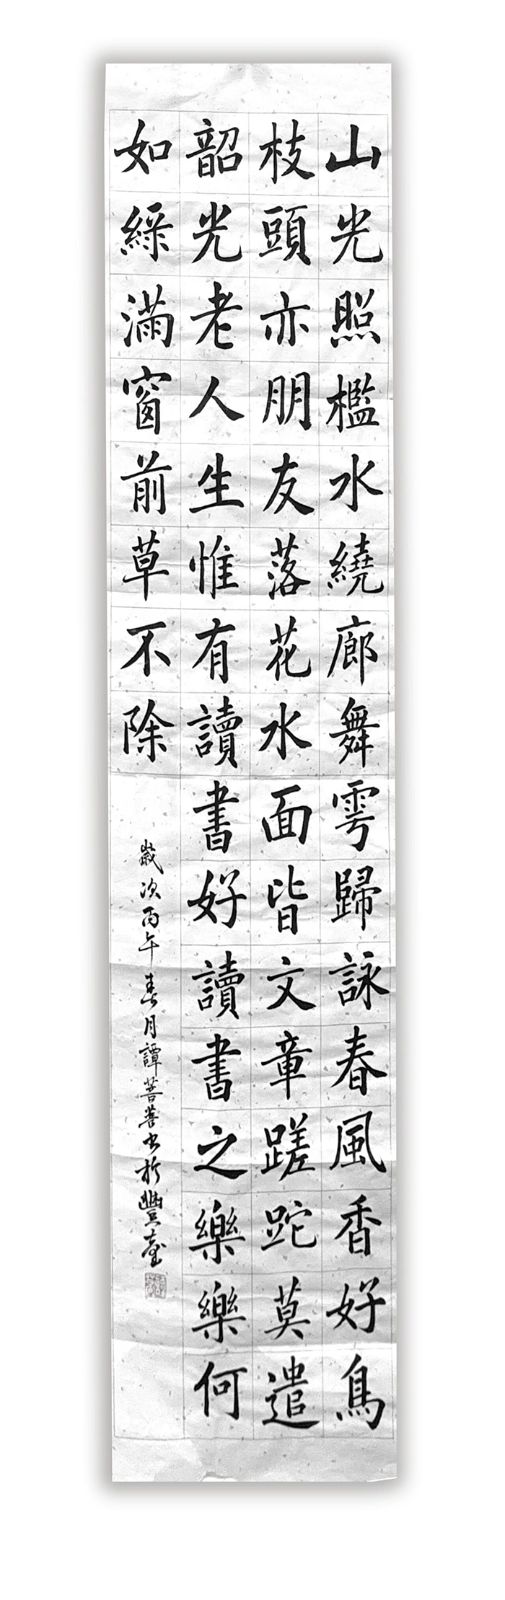 山光照檻水繞廊舞雩歸詠春風香好鳥
枝頭亦朋友落花水面皆文章蹉跎莫遣
韶光老人生惟有讀書好讀書之樂樂何
如綠滿窗前草不除
歲次丙午春月譚書於豐臺